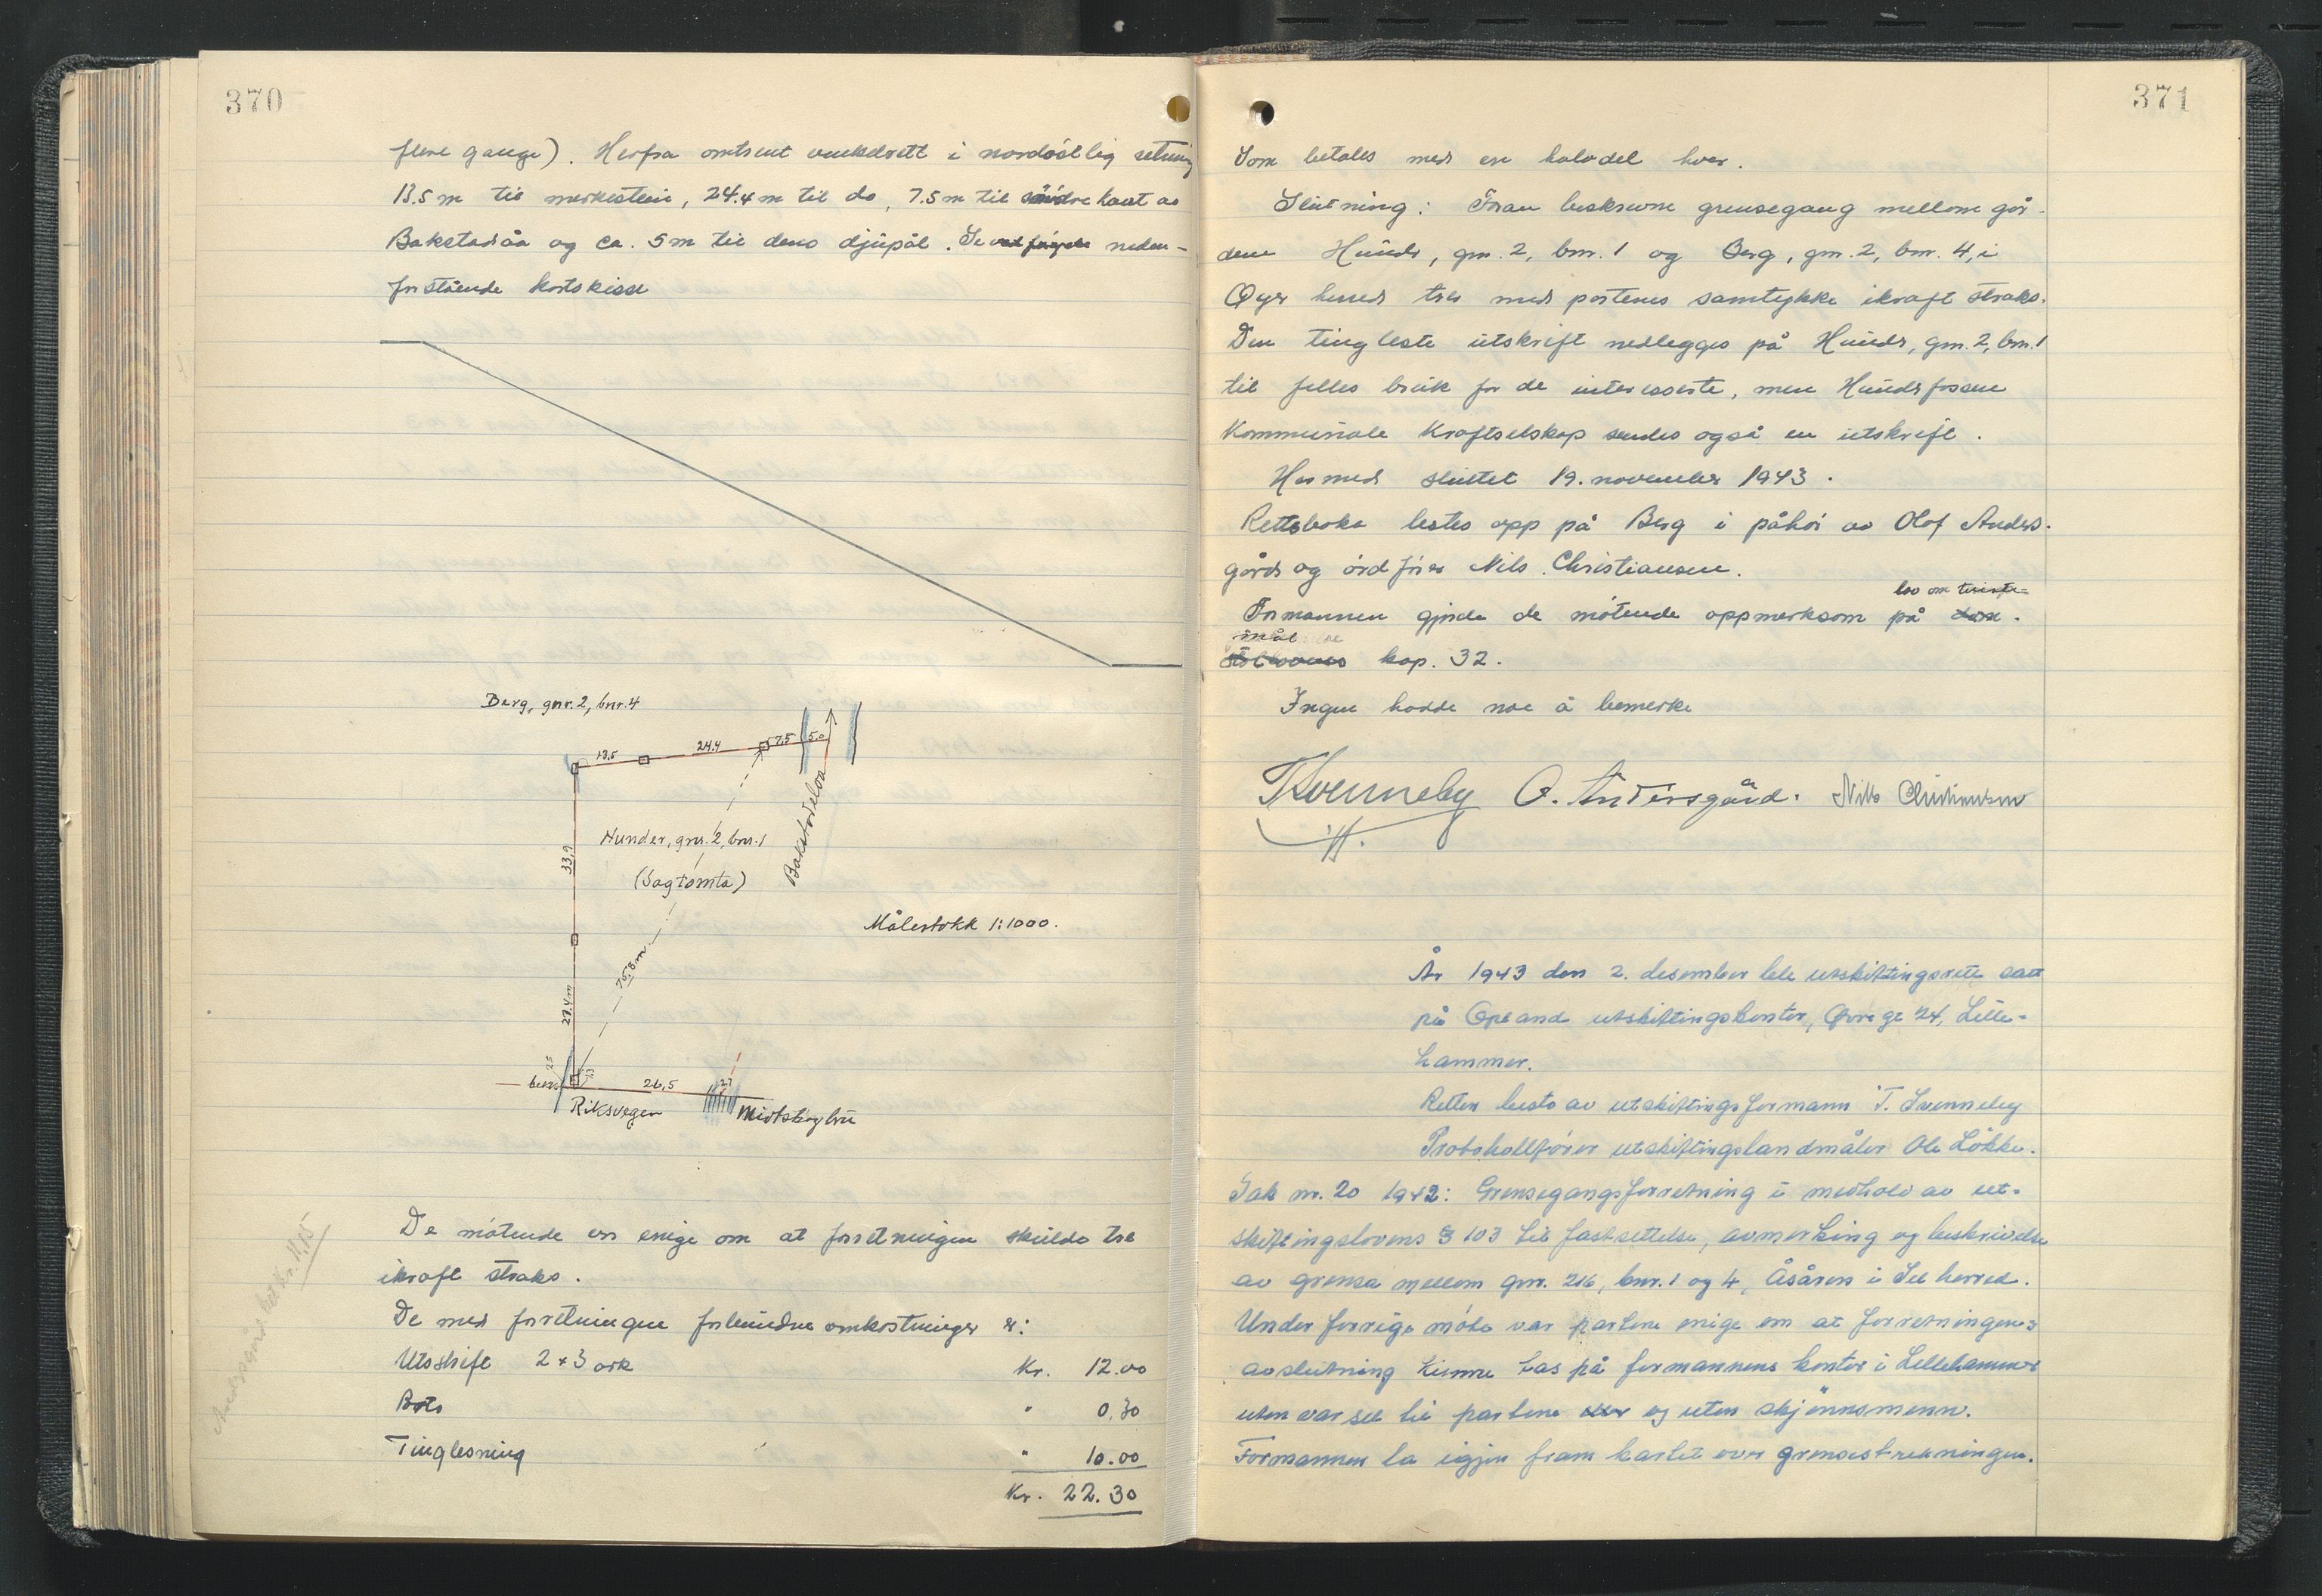 370
flere gange). Herfra omtrent vinkelrett i nordöstlig retning
13.5 m til merkestein, 24.4 m til do, 7.5 m til söndre kant av
Bakstadåa og ca. 5 m til dens djupål. Se neden-
forstående kartskisse
Berg, gnr. 2, bnr. 4
13,5 24,4 7,5 5,0
Bakstadelva
Hunder, gnr. 2, bnr. 1
(Sagtomta)
33,9
Målestokk 1:1000.
75,8 m
27.4 m
2,5
26,5 2,7
Riksvegen Midtskog bru
De mötende er enige om at forretningen skulde tre
ikraft straks.
De med forretningen forbundne omkostninger er:
Utskrift 2 + 3 ark Kr. 12.00
Porto " 0,30
Tinglesning " 10.00
Kr. 22.30
371
Som betales med en halvdel hver.
Slutning: Foran beskrevne grensegang mellom går-
dene Hunder, gnr. 2, bnr. 1 og Berg, gnr. 2, bnr. 4, i
Öyer herred trer med partenes samtykke ikraft straks.
Den tingleste utskrift nedlegges på Hunder, gnr. 2, bnr. 1
til felles bruk for de interesserte, men Hundsfossen
Kommunale Kraftselskap sendes også en utskrift.
Hermed sluttet 19. november 1943.
Rettsboka lestes opp på Berg i påhör av Olof Anders-
gård og ordförer Nils Christiansen.
lov om tviste-
Formannen gjorde de mötende oppmerksom på
mål
kap. 32.
Ingen hadde noe å bemerke
T Svenneby O. Andersgård. Nils Christiansen
År 1943 den 2. desember ble utskiftingsrett satt
på Opland utskiftingskontor, Gørege 24, Lille-
hammer.
Retten besto av utskiftingsformann T. Svenneby
Protokollförer utskiftingslandmåler Ole Lökke.
Sak nr. 20 1942: Grensegangsforretning i medhold av ut-
skiftingslovens § 103 til fastsettelse, avmerking og beskrivelse
av grensa mellom gnr. 216, bnr. 1 og 4, Åsåren i Sel herred.
Under forrige möte var partene enige om at forretningens
avslutning kunne tas på formannens kontor i Lillehammer
uten varsel til partene og uten skjönnsmenn.
Formannen la igjen fram kartet over grensestrekningen.